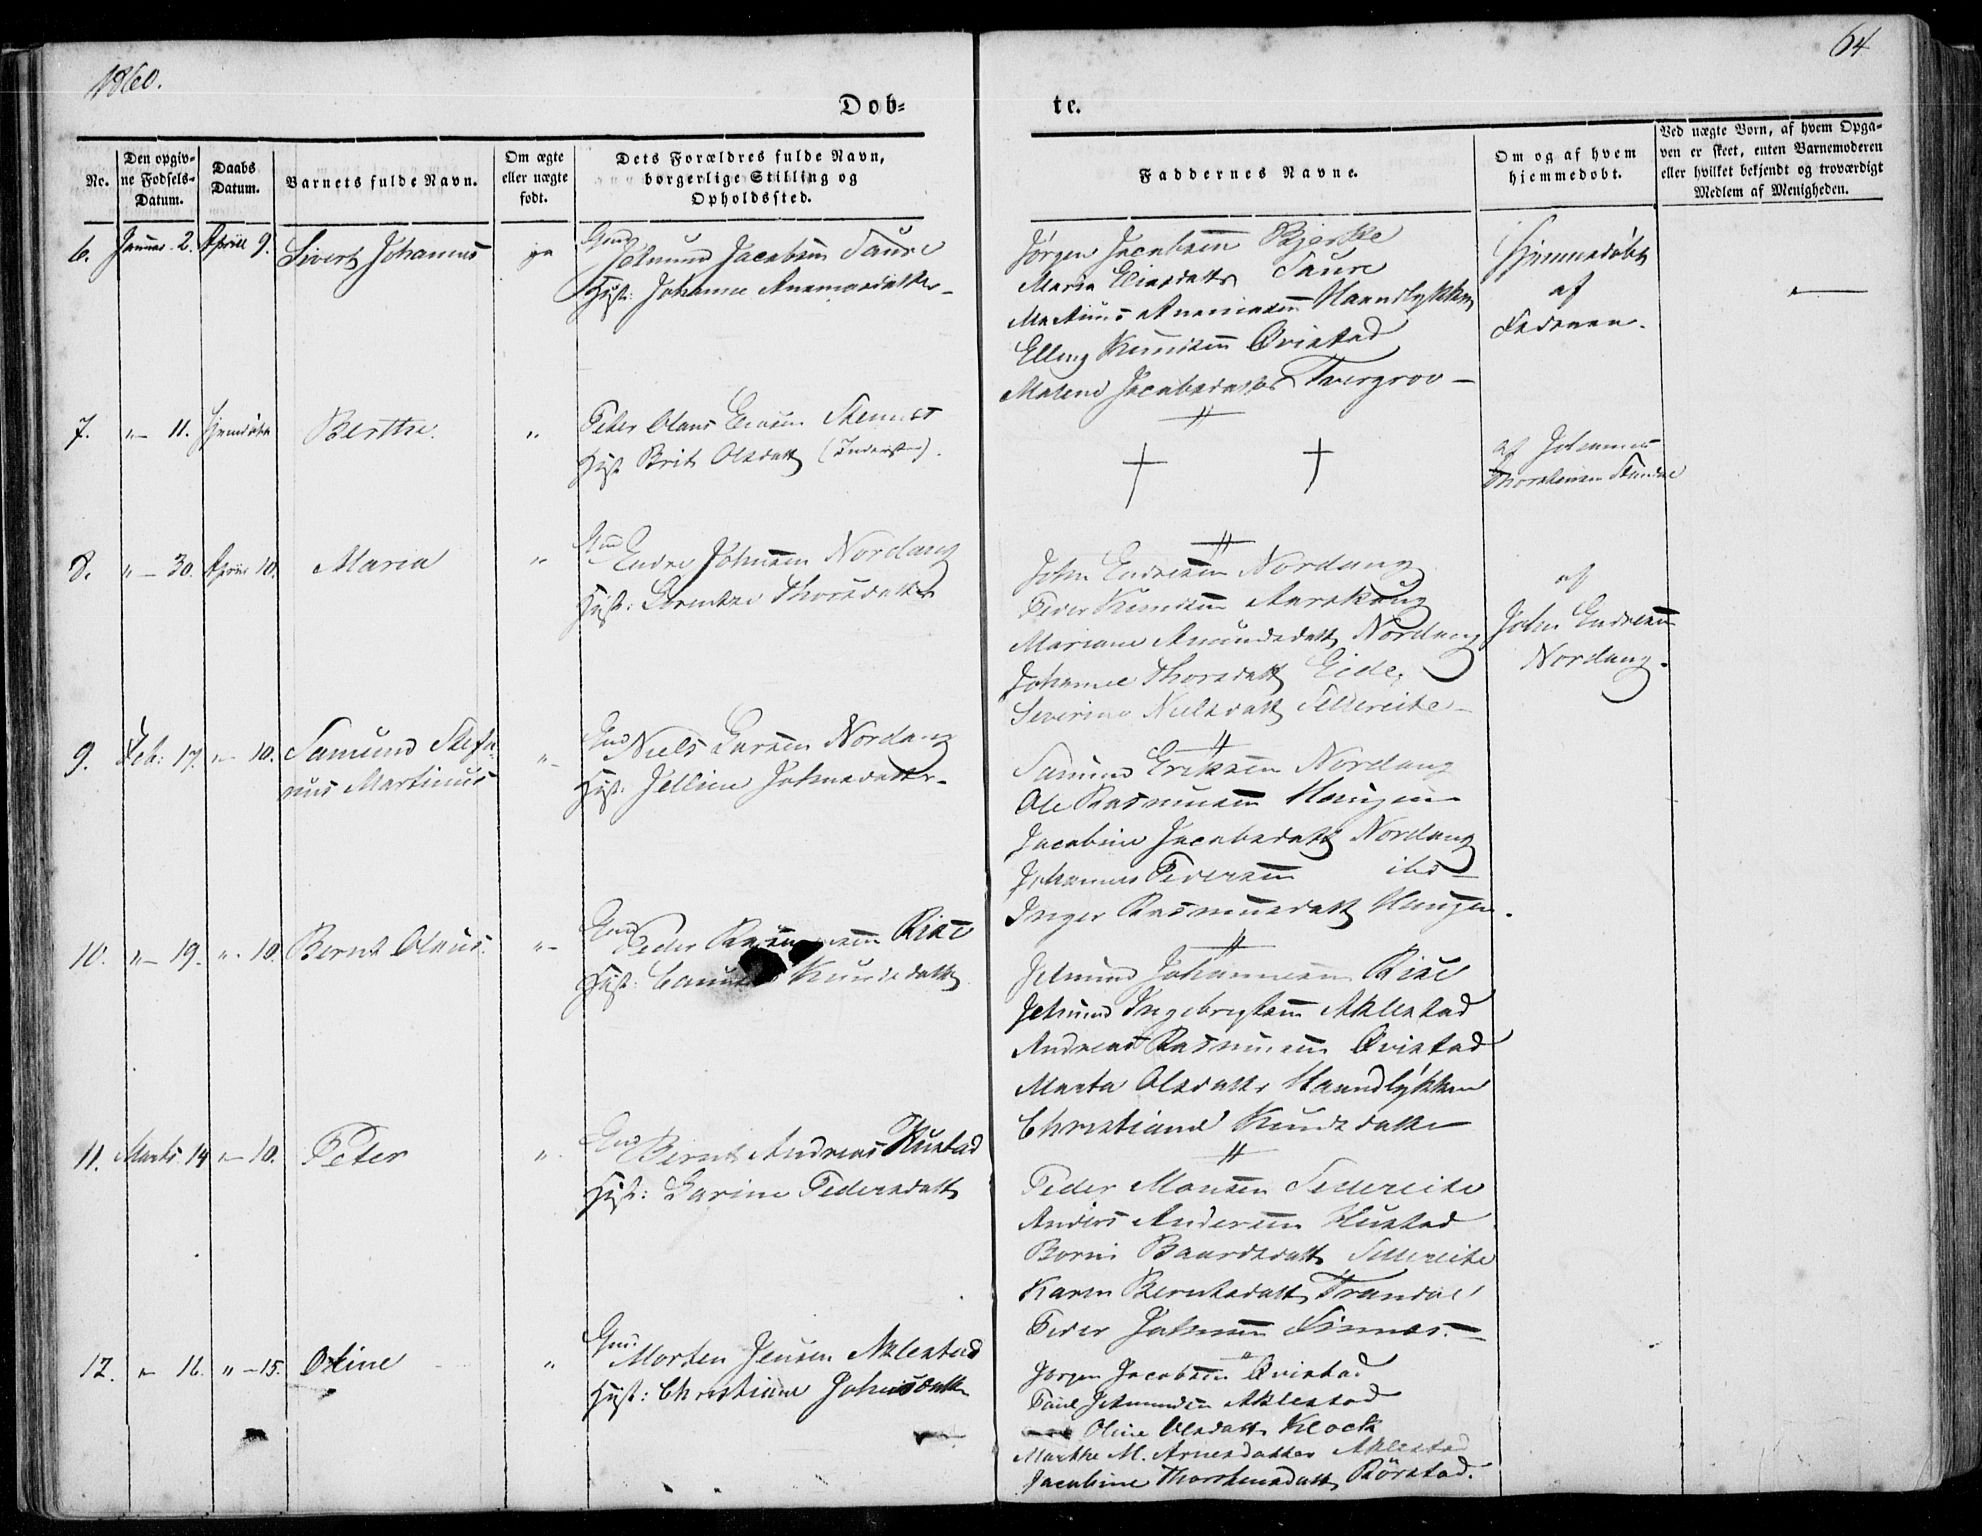 1860.
64
Dob-
te.
Nr.
Den opgiv-
ne Fødsels-
Datum.
Daabs
Datum.
Barnets fulde Navn.
Om ægte
eller uægte
født.
Dets Forældres fulde Navn,
borgerlige Stilling og
Opholdssted.
Faddernes Navne.
Om og af hvem
hjemmedøbt.
Ved uægte Børn, af hvem Opga-
ven er skeet, enten Barnemoderen
eller hvilket bekjendt og troværdigt
Medlem af Menigheden.
6. Januar 2. April 9. Sivert Johannes
Gmd Jetmund Jacobsen Saure
Hust: Johanne Ananiasdatter
Jørgen Jacobsen Bjerke
Maria Eliasdatter Saure
Martinus Ananiasen Haandlykken
Elling Knudsen Qvistad
Malene Jacobsdatter Tvergrov
Hjemmedøbt
af
Faderen.
7. " 11. Hjemdøbt Berthe. "
Peter Olaus Stennes
Hust Brit Olsdatt (Inderster).
af Johannes
Thorsteinsen
8. " 30. April 10. Maria "
Gmd Endre Johnsen Nordang
Hust: Lorentze Thorsdatter
John Endresen Nordang
Peder Knudsen Aarskoug
Mariane Amundsdatt Nordang
Johanne Thorsdatt Eide,
Severine Nielsdatt Sellereite
af
John Endresen
Nordang.
9. Feb: 17. " 10. Samund Stefa-
nus Martinus "
Gmd Niels Larsen Nordang
Hust: Jelline Johnsdatter
Samund Eriksen Nordang
Ole Rasmusen Haugen
Jacobine Jacobsdatt Nordang
Johannes Pedersen ibd
Inger Rasmusdatt Haugen.
10. " 19. " 10. Bernt Olaus. "
Gmd Peder Rise
Hust: Knudsdatt
Jetmund Johannesen Rise
Jetmund Ingebrigtsen Aklestad
Andreas Rasmusen Qvistad
Marta Olsdatter Haandlykken
Christiane Knudsdatter
11. Marts 14 " 10. Peter "
Gmd Bernt Andreas Hustad
Hust: Karine Pedersdatt
Peder Monsen Sellereite
Anders Andersen Hustad
Baardsdatt Sellereite
Karen Berntsdatt Trandal
Peder Johnsen Finnes.
12. " 16. " 15. Oline "
Gmd Morten Jensen Aklestad
Hust: Christiane Johnsdatter
Jørgen Jacobsen Qvistad
Paul Jetmundsen Aklestad
Oline Olsdatt Klock
Marthe M. Arnesdatter Aklestad
Jacobine Thorsteinsdatt Rørstad.